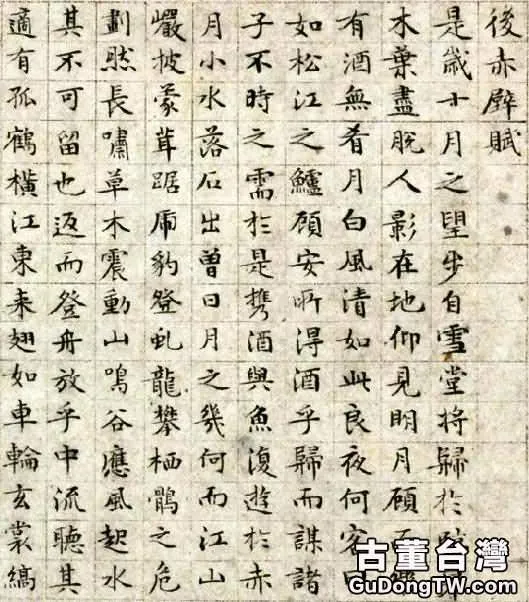 後赤壁賦
是歲十月之望步自雪堂將歸於
木葉盡脫人影在地仰見明月顧
有酒無肴月白風清如此良夜何客
如松江之鱸顧安所得酒乎歸而謀諸
子不時之需於是攜酒與魚復遊於赤
月小水落石出曾日月之幾何而江山
巖披蒙茸踞虎豹登虬龍攀栖鶻之危
劃然長嘯草木震動山鳴谷應風起水
其不可留也返而登舟放乎中流聽其
適有孤鶴橫江東来翅如車輪玄裳縞
古董台灣
GuDongTW.com